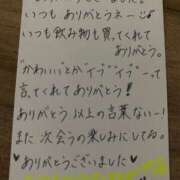 いつも ありがとうネー♪
いつも飲み物も買ってくれて
ありがとう。
"かわいい"とか"イブ""イブ"って
言ってくれてありがとう!
ありがとう以上の言葉ないー!
また次会うの楽しみにしてるね。
♥ありがとうございました♥